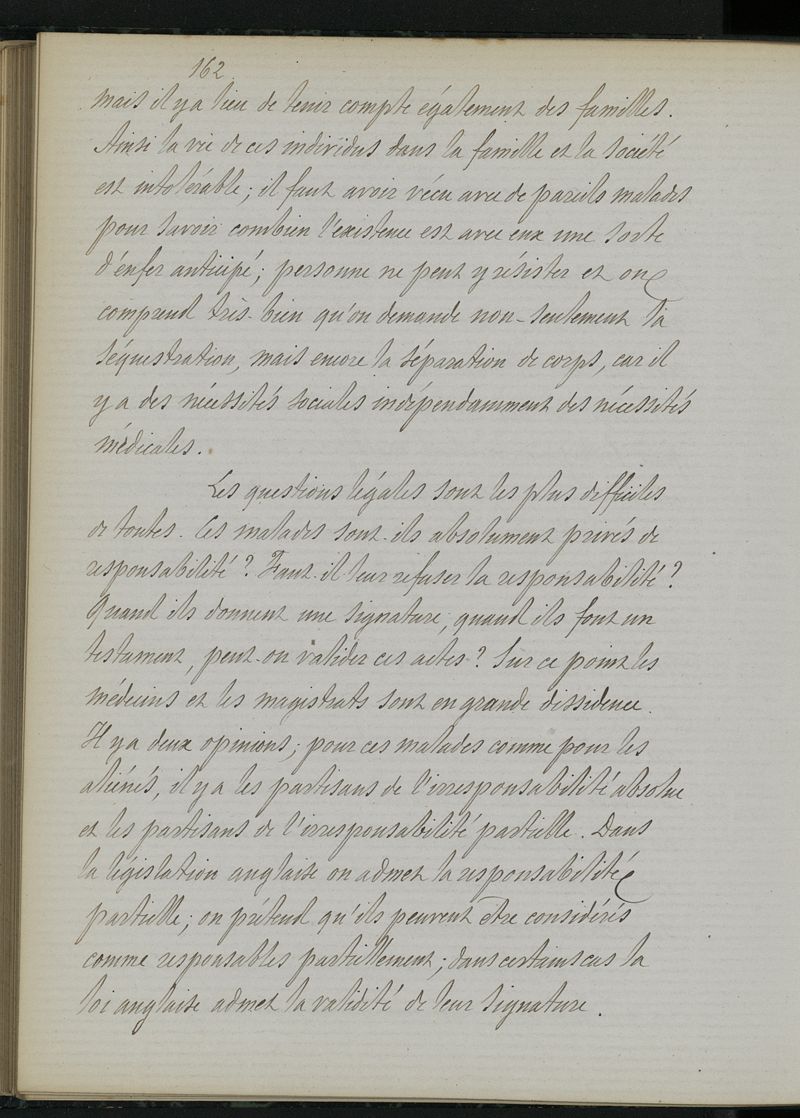 162
mais il y a lieu de tenir compte également des familles.
Ainsi la vie de ces individus dans la famille et la société
est intolérable ; il faut avoir vécu avec de pareils malades
pour savoir combien l'existence est avec eux une sorte
d'enfer anticipé ; personne ne peut y résister et on
comprend très-bien qu'on demande non-seulement la
séquestration, mais encore la séparation de corps, car il
y a des nécessités sociales indépendamment des nécessités
médicales.
Les questions légales sont les plus difficiles
de toutes. Ces malades sont-ils absolument privés de
responsabilité ? Faut-il leur refuser la responsabilité ?
Quand ils donnent une signature, quand ils font un
testament, peut-on valider ces actes ? Sur ce point les
médecins et les magistrats sont en grande dissidence.
Il y a deux opinions ; pour ces malades comme pour les
aliénés, il y a les partisans de l'irresponsabilité absolue
et les partisans de l'irresponsabilité partielle. Dans
la législation anglaise on admet la responsabilité
partielle ; on prétend qu'ils peuvent être considérés
comme responsables partiellement ; dans certains cas la
loi anglaise admet la validité de leur signature.